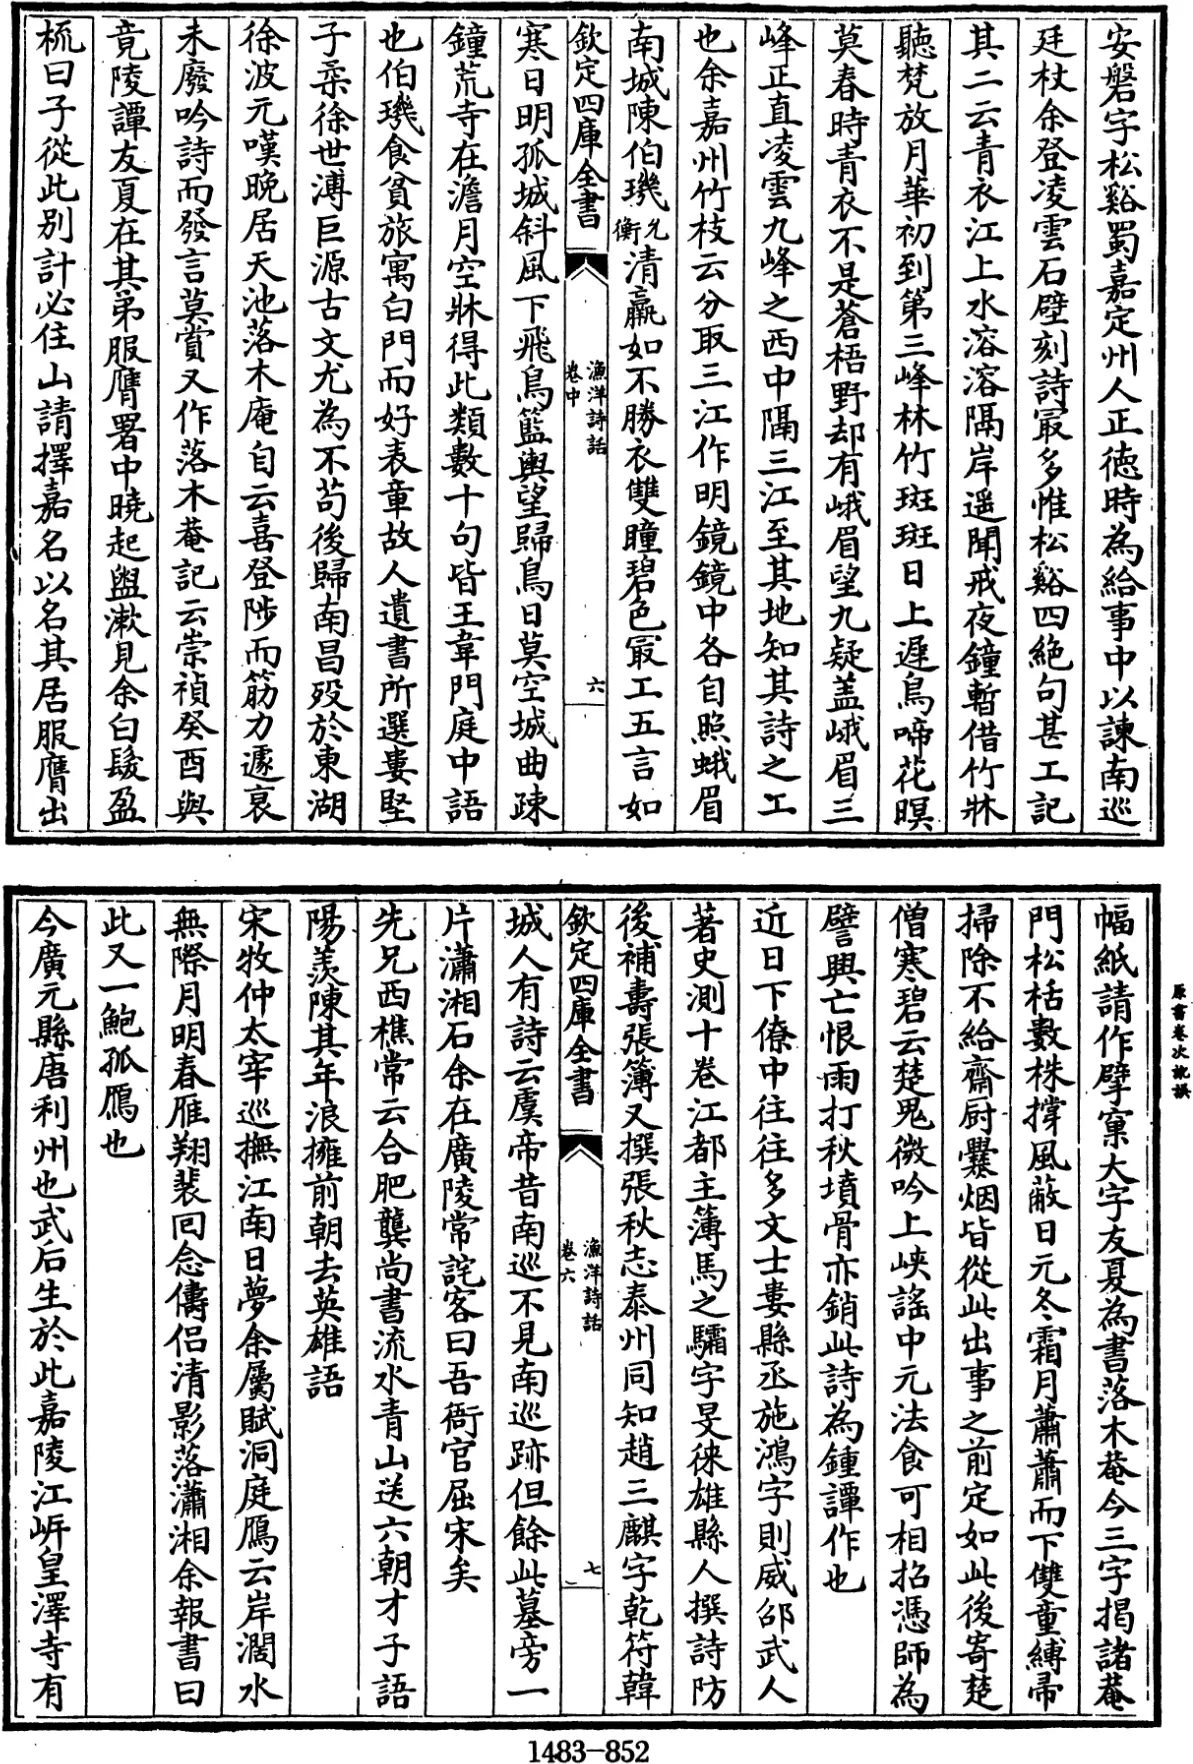 安磐字松谿蜀嘉定州人正徳時為給事中以諫南巡
廷杖余登凌雲石壁刻詩㝡多惟松谿四絶句甚工記
其二云青衣江上水溶溶隔岸遥聞戒夜鐘暫借竹牀
聽梵放月華初到第三峰林竹斑斑日上遲鳥啼花暝
莫春時青衣不是蒼梧野却有峨眉望九疑盖峨眉三
峰正直凌雲九峰之西中隔三江至其地知其詩之工
也余嘉州竹枝云分取三江作明鏡鏡中各自照蛾眉
南城陳伯璣允衡清羸如不勝衣雙瞳碧色㝡工五言如
欽定四庫全書
漁洋詩話
卷中
六
寒日明孤城斜風下飛鳥籃輿望歸鳥日莫空城曲疎
鐘荒寺在澹月空牀得此類數十句皆王韋門庭中語
也伯璣食貧旅寓白門而好表章故人遺書所選婁堅
子柔徐世溥巨源古文尤為不苟後歸南昌歿於東湖
徐波元嘆晚居天池落木庵自云喜登陟而筋力遽衰
未廢吟詩而發言莫賞又作落木菴記云崇禎癸酉與
竟陵譚友夏在其弟服膺署中曉起盥漱見余白髮盈
梳曰子從此别計必住山請擇嘉名以名其居服膺出
幅紙請作擘窠大字友夏為書落木菴今三字揭諸菴
門松栝數株撐風蔽日元冬霜月蕭蕭而下雙童縛帚
掃除不給齋厨爨烟皆從此出事之前定如此後寄楚
僧寒碧云楚鬼微吟上峽謡中元法食可相招憑師為
譬興亡恨雨打秋墳骨亦銷此詩為鍾譚作也
近日下僚中往往多文士婁縣丞施鴻字則威邵武人
著史測十卷江都主簿馬之驌字旻徠雄縣人撰詩防
後補壽張簿又撰張秋志泰州同知趙三麒字乾符韓
欽定四庫全書
漁洋詩話
卷六
七
城人有詩云虞帝昔南巡不見南巡跡但餘此墓旁一
片瀟湘石余在廣陵常詫客曰吾衙官屈宋矣
先兄西樵常云合肥龔尚書流水青山送六朝才子語
陽羨陳其年浪擁前朝去英雄語
宋牧仲太宰巡撫江南日夢余屬賦洞庭鴈云岸濶水
無際月明春雁翔裴回念儔侣清影落瀟湘余報書曰
此又一鮑孤鴈也
今廣元縣唐利州也武后生於此嘉陵江岍皇澤寺有
原書卷次訛誤
1483-852